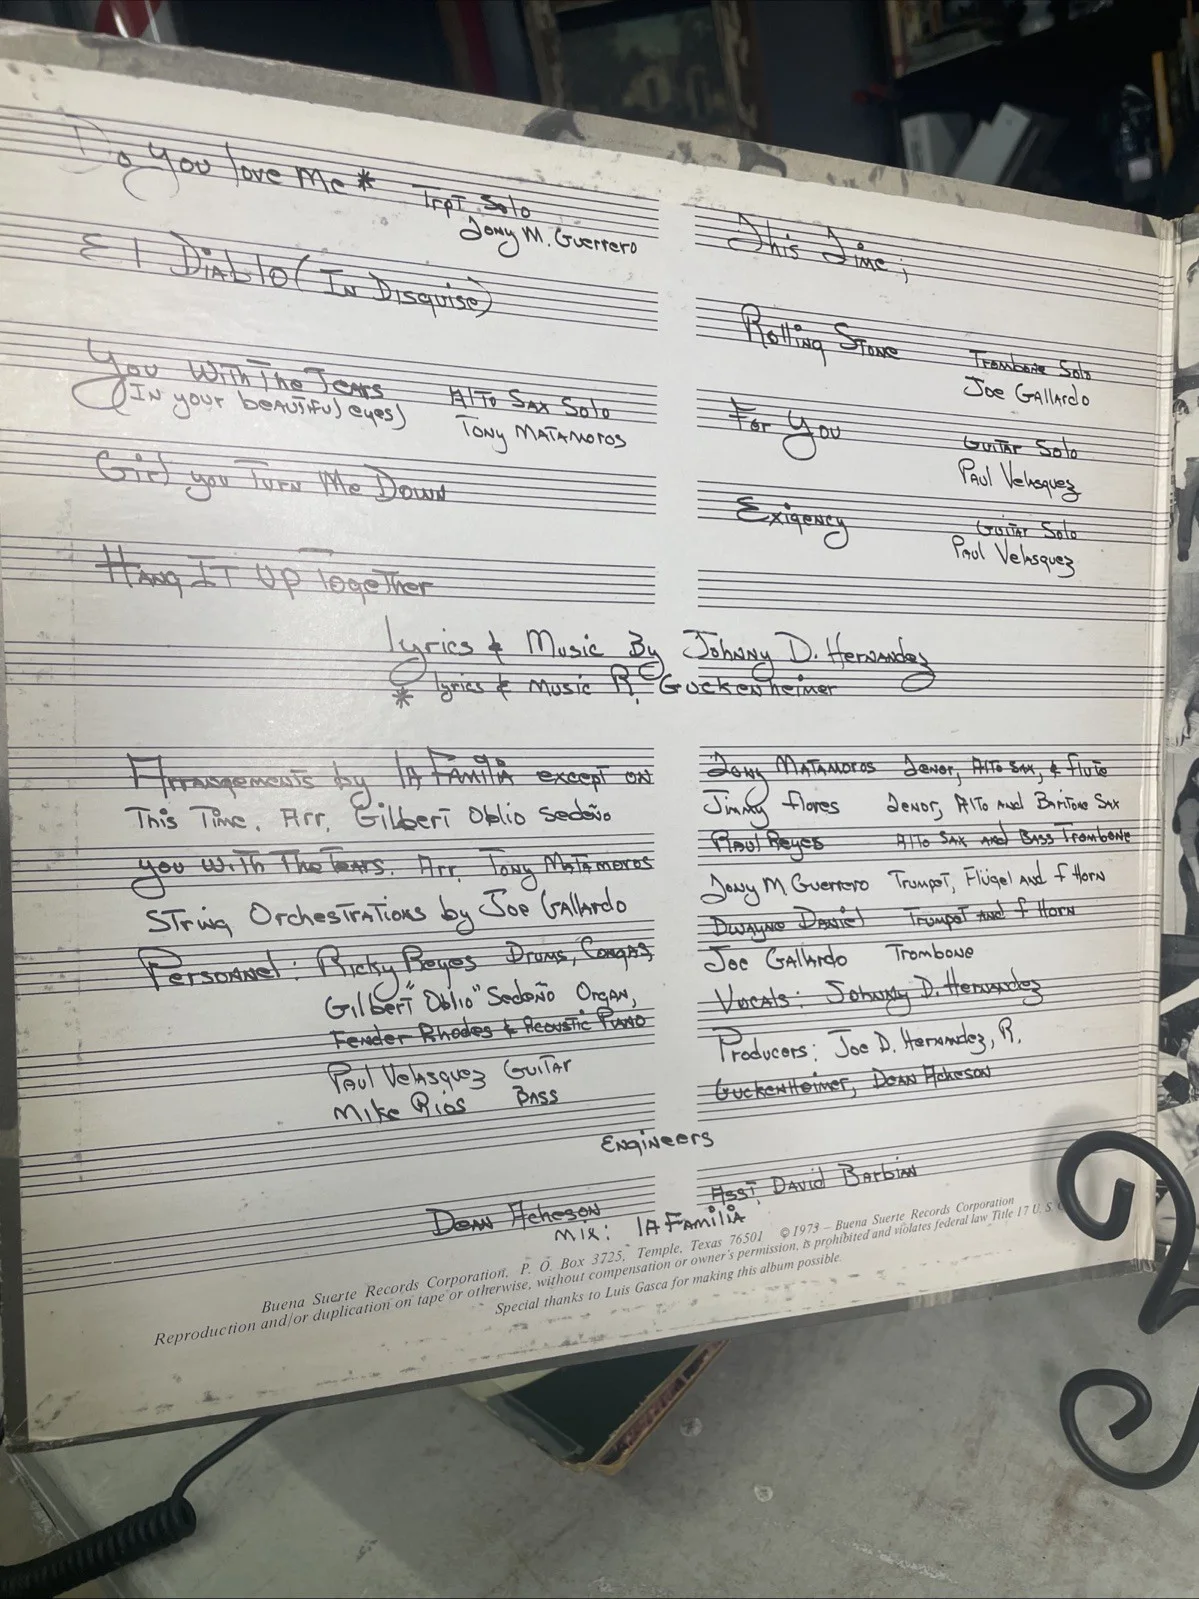 Do You love Me *
Trpt Solo
Tony M. Guerrero
El Diablo (In Disguise)
You With The Tears
(In your beautiful eyes)
Alto Sax Solo
Tony Matamoros
Girl you Turn Me Down
Hang It Up Together
This Time;
Rolling Stone
Trombone Solo
Joe Gallardo
For You
Guitar Solo
Paul Velasquez
Exigency
Guitar Solo
Paul Velasquez
lyrics & Music By Johnny D. Hernandez
* lyrics & Music R. Guckenheimer
Arrangements by la Familia except on
This Time. Arr. Gilbert Oblio Sedeño
you With The Tears. Arr. Tony Matamoros
String Orchestrations by Joe Gallardo
Personnel: Ricky Reyes Drums, Congas,
Gilbert "Oblio" Sedeño Organ,
Fender Rhodes & Acoustic Piano
Paul Velasquez Guitar
Mike Rios Bass
Tony Matamoros Tenor, Alto Sax, & flute
Jimmy flores Tenor, Alto and Baritone Sax
Raul Reyes Alto Sax and Bass Trombone
Tony M Guerrero Trumpet, Flügel and f Horn
Dwayne Daniel Trumpet and f Horn
Joe Gallardo Trombone
Vocals: Johnny D. Hernandez
Producers: Joe D. Hernandez, R.
Guckenheimer, Dean Acheson
Engineers
Dean Acheson
Asst. David Barbian
Mix: la Familia
Buena Suerte Records Corporation, P. O. Box 3725, Temple, Texas 76501 © 1973 – Buena Suerte Records Corporation
Reproduction and/or duplication on tape or otherwise, without compensation or owner's permission, is prohibited and violates federal law Title 17 U. S.
Special thanks to Luis Gasca for making this album possible.